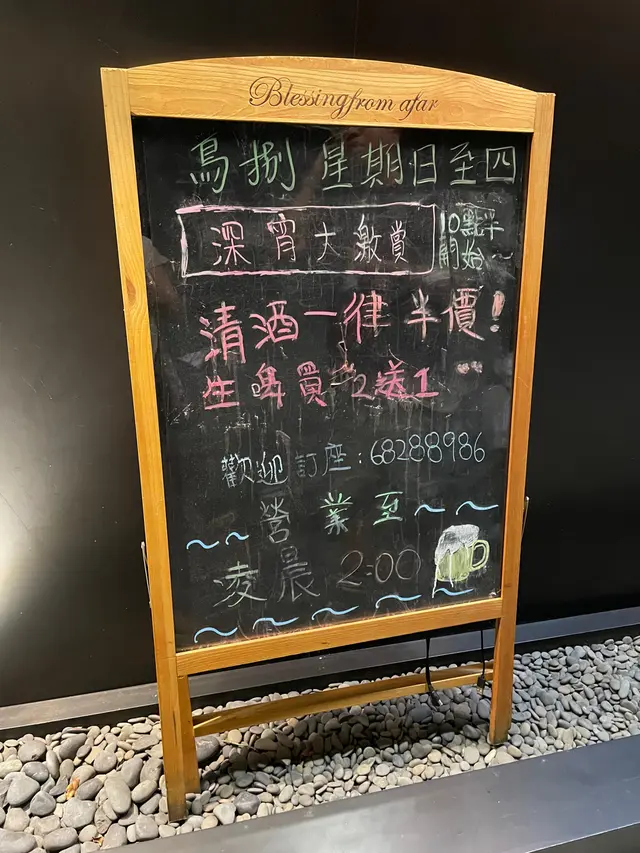 Blessing from afar
鳥捌 星期日至四
深宵大激賞 10點半開始~
清酒一律半價!
生啤買2送1
歡迎訂座:68288986
營業至~~
~~凌晨 2:00